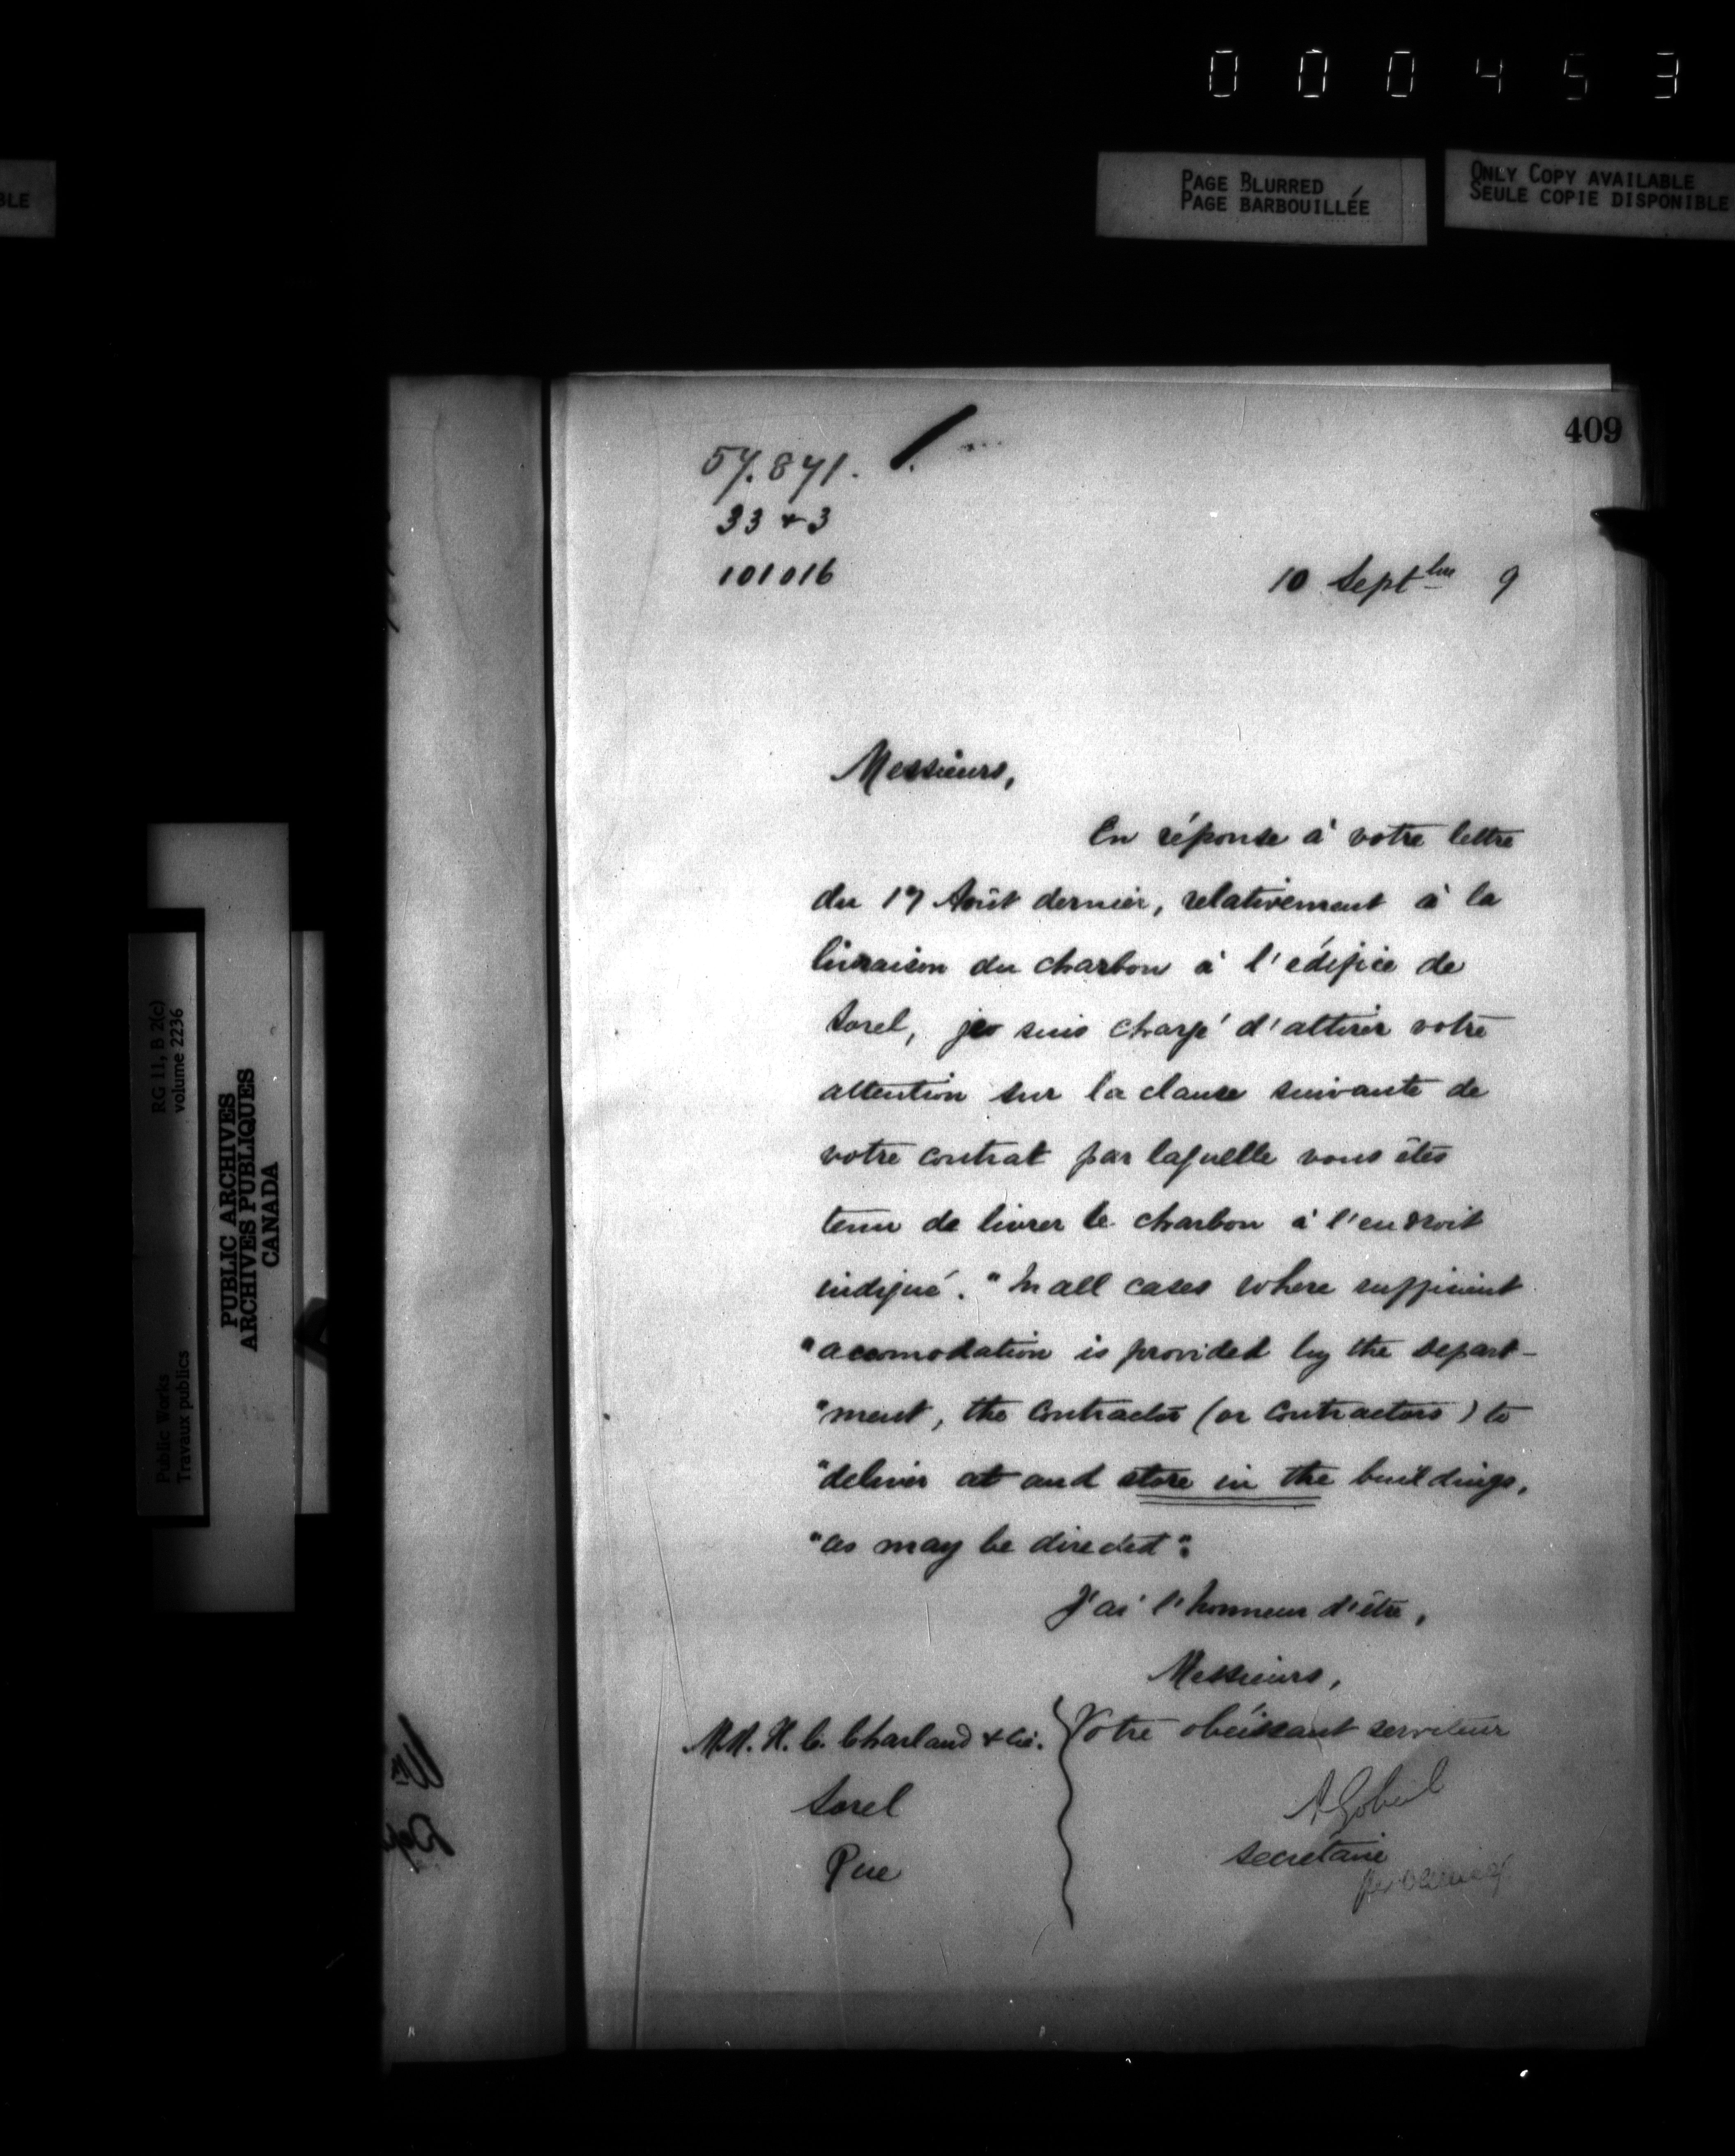 0 0 0 4 5 3
BLE
PAGE BLURRED
PAGE BARBOUILLÉE
ONLY COPY AVAILABLE
SEULE COPIE DISPONIBLE
409
57.871.
33 & 3
101016
10 Septbre 9
Messieurs,
En réponse à votre lettre
du 17 Août dernier, relativement à la
livraison du charbon à l'édifice de
Sorel, je suis chargé d'attirer votre
attention sur la clause suivante de
votre contrat par laquelle vous êtes
tenu de livrer le charbon à l'endroit
indiqué. "In all cases where sufficient
"accomodation is provided by the Depart-
"ment, the Contractor (or Contractors) to
"deliver at and store in the buildings,
"as may be directed".
J'ai l'honneur d'être,
Messieurs,
Votre obéissant serviteur
A Gobeil
Secrétaire
MM. H. C. Charland & Cie.
Sorel
Que
RG 11, B 2(c)
volume 2236
Public Works
Travaux publics
PUBLIC ARCHIVES
ARCHIVES PUBLIQUES
CANADA